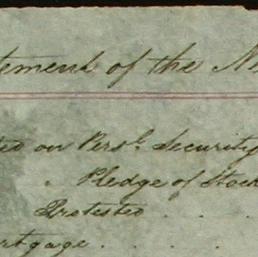 tement of the N
ed on Persl. Security
" Pledge of Stock
Protested . . .
rtgage . . .